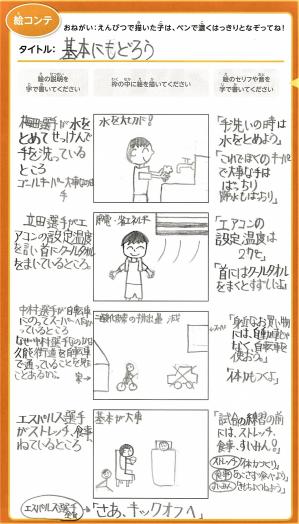 絵コンテ
おねがい:えんぴつで描いた子は、ペンで濃くはっきりとなぞってね!
タイトル: 基本にもどろう
絵の説明を
字で書いてください
枠の中に絵を描いてください
絵のセリフや音を
字で書いてください
梅田選手が水を
とめてせっけんで
手を洗っている
ところ
水を大切に!
「手洗いの時は
水をとめよう」
「これでぼくのキーパー
で大事な手は
ばっちり
節水もばっちり」
立田選手がエ
アコンの設定温度
を言い首にクールタオル
をまいているところ。
節電・省エネルギー
「エアコンの
設定温度は
27℃」
「首にはクールタオル
をまくとすずしいよ」
中村選手が自転車
にのってスーパーへ向か
っているところ
「身近なお買い物
には、自動車じゃ
なく、自転車を
使おう。」
「体力もつくよ」
エスパルス選手
がストレッチ、食事、
ねているところ
基本が大事
「試合や練習の前
には、ストレッチ、
食事、すいみん!」
ストレッチ
食事
すいみん
エスパルス選手
全員
「さあ、キックオフへ」